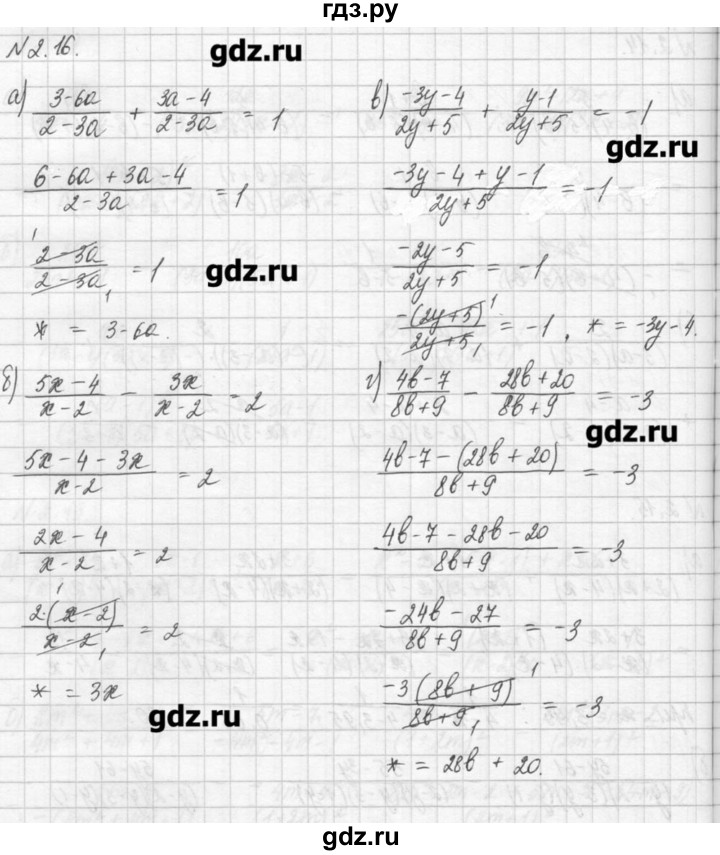 гдз.ру
gdz.ru
N2.16.
а) (3-6a)/(2-3a) + (3a-4)/(2-3a) = 1
(6-6a+3a-4)/(2-3a) = 1
(2-3a)/(2-3a) = 1
1
1
gdz.ru
* = 3-6a.
б) (5x-4)/(x-2) - (3x)/(x-2) = 2
(5x-4-3x)/(x-2) = 2
(2x-4)/(x-2) = 2
(2·(x-2))/(x-2) = 2
1
1
* = 3x
gdz.ru
в) (-3y-4)/(2y+5) + (y-1)/(2y+5) = -1
gdz.ru
(-3y-4+y-1)/(2y+5) = -1
(-2y-5)/(2y+5) = -1
(-(2y+5))/(2y+5) = -1, * = -3y-4.
1
1
г) (4b-7)/(8b+9) - (28b+20)/(8b+9) = -3
gdz.ru
(4b-7-(28b+20))/(8b+9) = -3
(4b-7-28b-20)/(8b+9) = -3
(-24b-27)/(8b+9) = -3
(-3(8b+9))/(8b+9) = -3
1
1
* = 28b+20.
gdz.ru